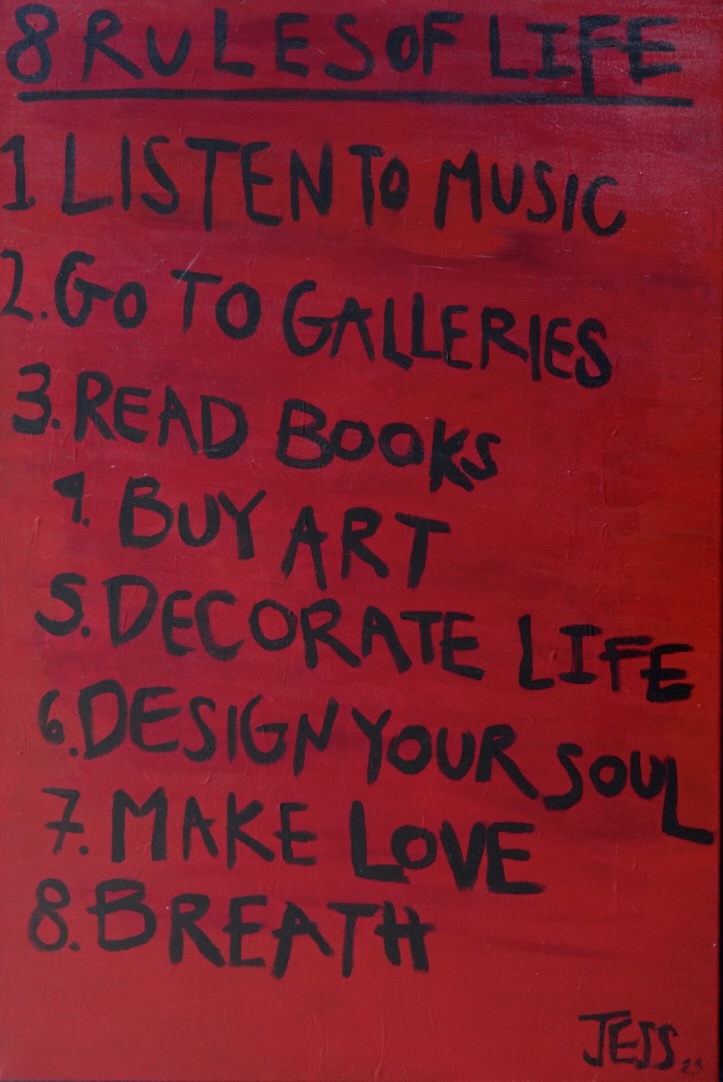 8 RULES OF LIFE
1 LISTEN TO MUSIC
2. GO TO GALLERIES
3. READ BOOKS
4. BUY ART
5. DECORATE LIFE
6. DESIGN YOUR SOUL
7. MAKE LOVE
8. BREATH
JESS 23